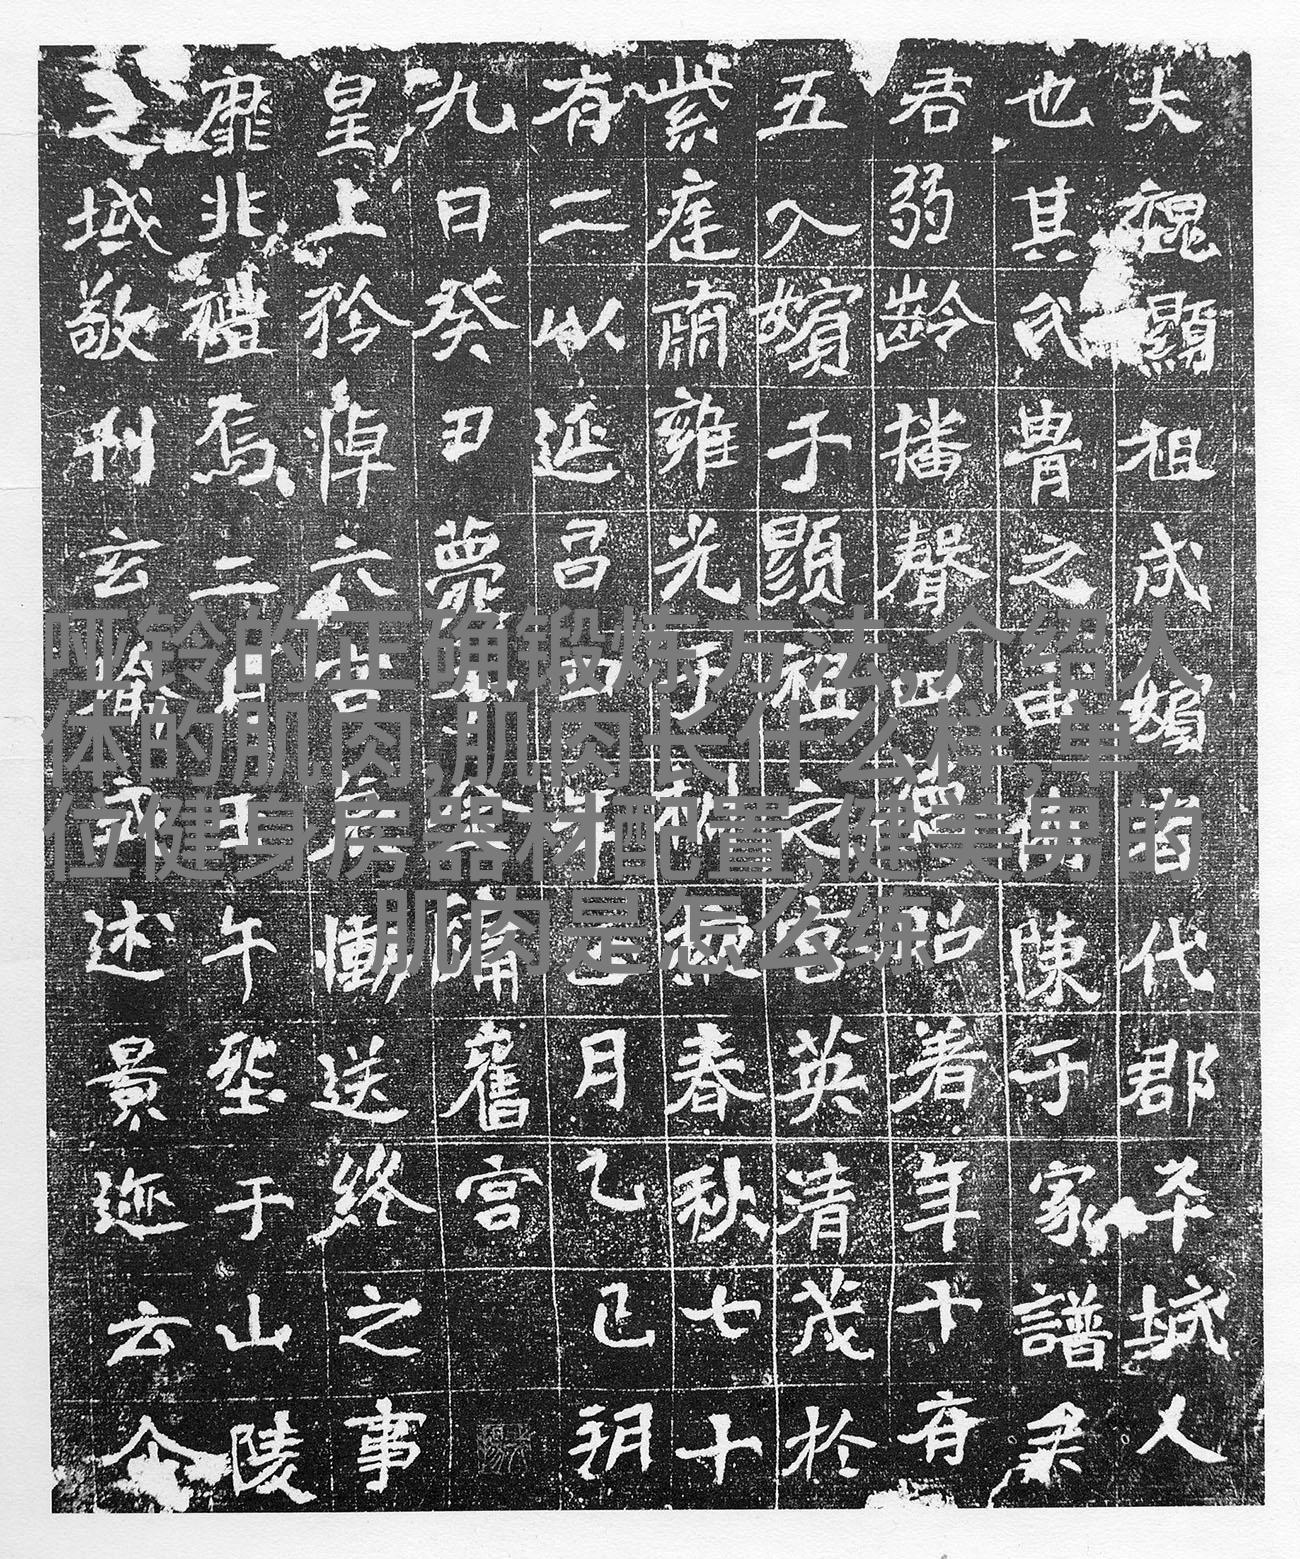 大魏顯祖成嬪者代郡平城人
也其氏胄之由備陳于家譜柔
君弱齡播聲四德昭著年十有
五入嬪于顯祖之宮英清茂於
紫庭肅雍光于椒掖春秋七十
有二以延昌四年正月乙巳朔
九日癸丑薨於金墉舊宮
皇上矜悼六宮哀慟送終之事
靡非禮焉二月壬午塟于山陵
之域敬刊玄瑜式述景迹云尒
哑铃的正确锻炼方法,介绍人
体的肌肉,肌肉长什么样,单
位健身房器材配置,健美男的
肌肉是怎么练